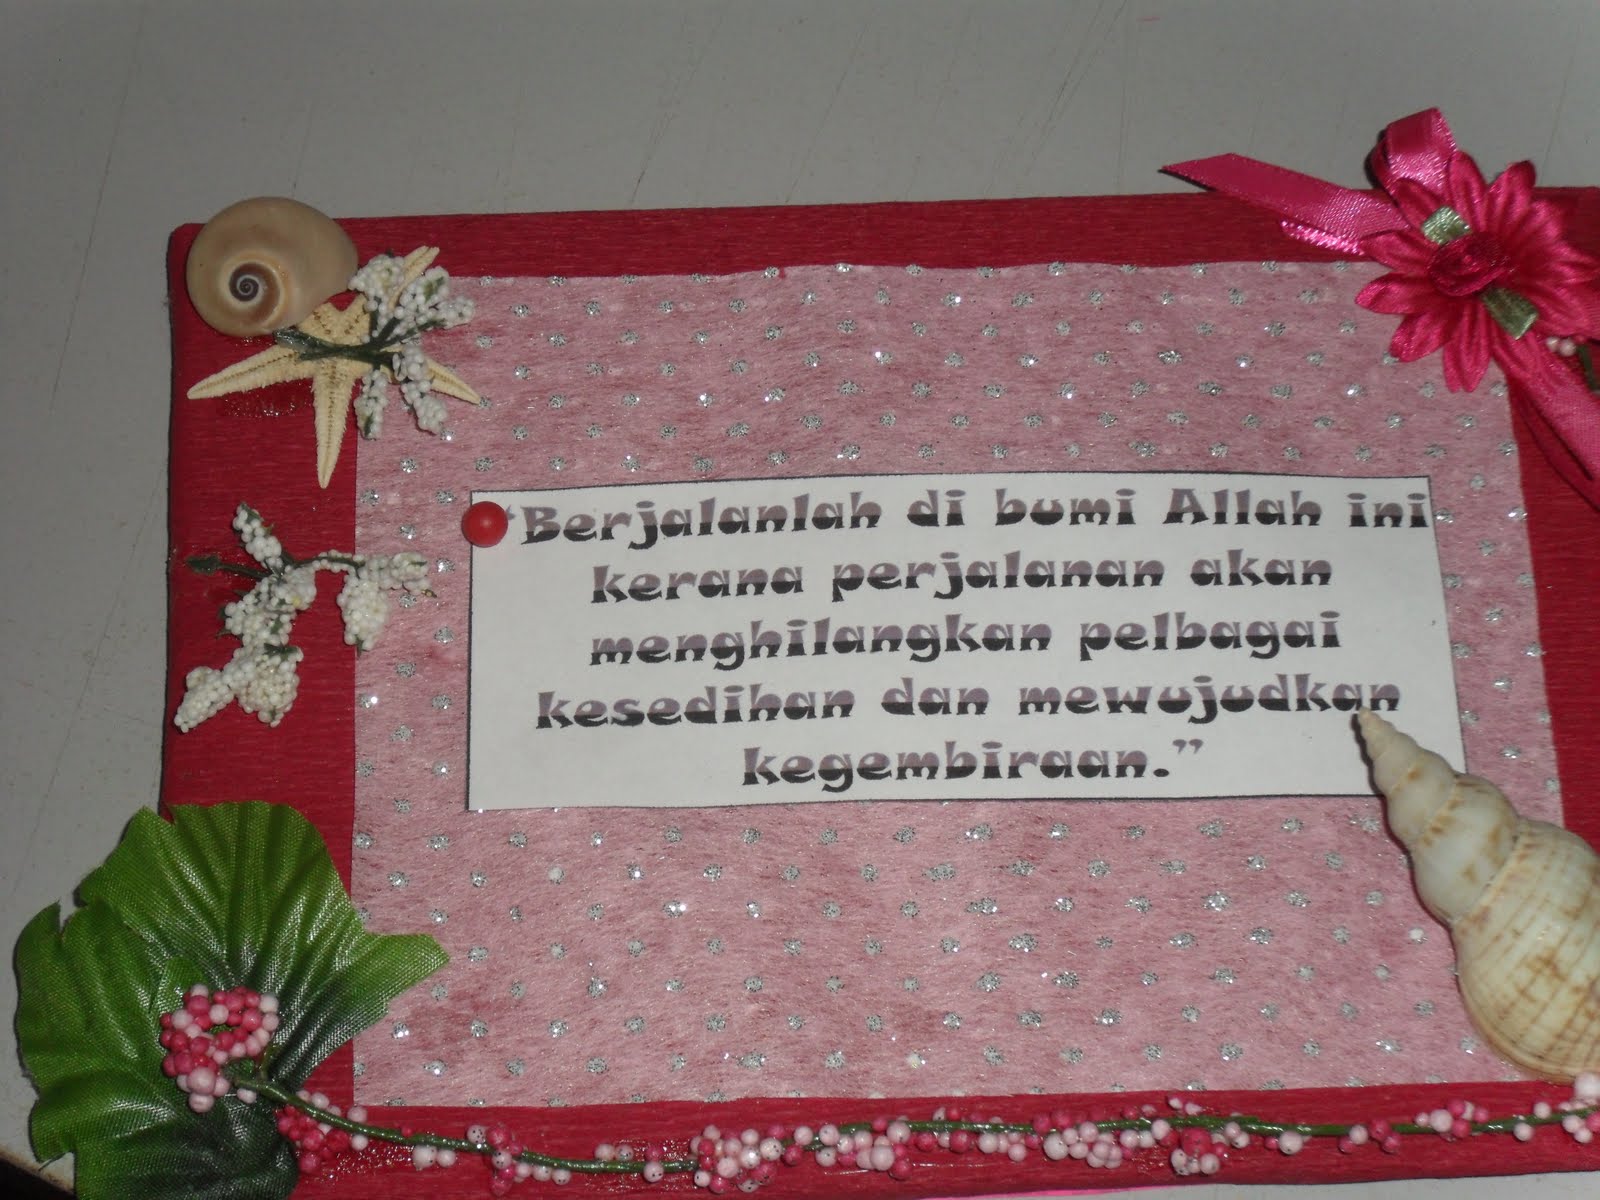 “Berjalanlah di bumi Allah ini
kerana perjalanan akan
menghilangkan pelbagai
kesedihan dan mewujudkan
kegembiraan.”